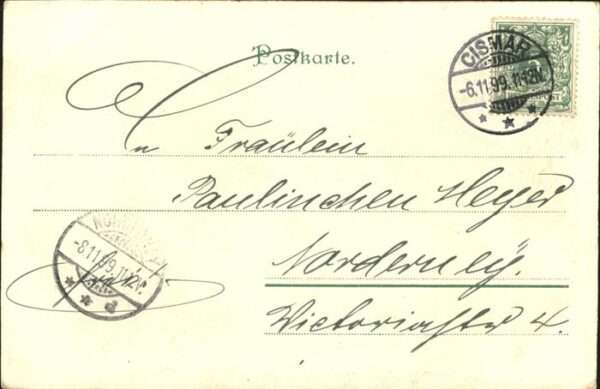 Postkarte.
CISMAR
-6.11.99.11-12V.
Fräulein
Paulinchen Meyer
Norderney.
Victoriastr 4.
-8.11.99.11-12V.